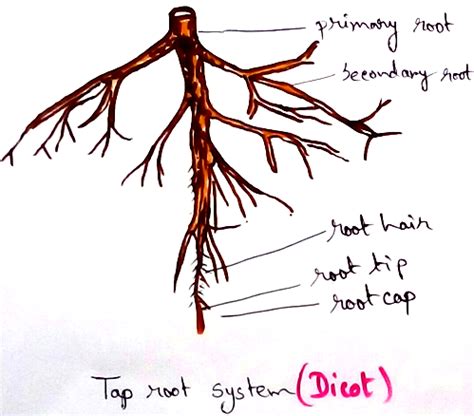 primary root
secondary root
root hair
root tip
root cap
Tap root system (Dicot)